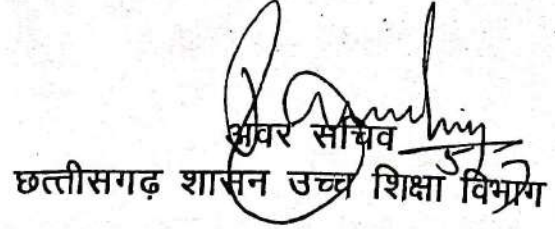 अवर सचिव
छत्तीसगढ़ शासन उच्च शिक्षा विभाग